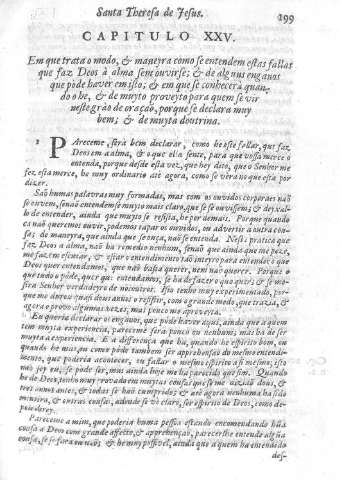 Santa Theresa de Jesus. 199
CAPITULO XXV.
Em que trata o modo, & maneyra como se entendem estas fallas
que faz Deos à alma sem ouvirse; & de alguns enganos
que póde haver em isto; & em que se conhecerà quan-
do o he, & de muyto proveyto para quem se vir
neste grào de oração, porque se declara muy
bem; & de muyta doutrina.
PAreceme, serà bem declarar, como he este fallar, que faz
Deos em a alma, & o que ella sente, para que vossa merce o
entenda, porque desde esta vez, que hey dito, que o Senhor me
fez esta merce, he muy ordinario atè agora, como se verà no que està por
dizer.
Saõ humas palavras muy formadas, mas com os ouvidos corporaes naõ
se ouvem, senaõ entendemse muyto mais claro, que se se ouvissem; & deyxa-
lo de entender, ainda que muyto se resista, he por demais. Porque quando
cà naõ queremos ouvir, podemos tapar os ouvidos, ou advertir a outra cou-
sa; de maneyra, que ainda que se ouça, naõ se entenda. Nesta pratica que
faz Deos a alma, naõ ha remedio nenhum, senaõ que ainda que me peze,
me fazem escutar, & estar o entendimento taõ inteyro para entender o que
Deos quer entendamos, que naõ basta querer, nem naõ querer. Porque o
que tudo o póde, quer que entendamos, se ha de fazer o que quer; & se mos-
tra Senhor verdadeyro de nós outros. Isto tenho muy experimentado, por-
que me durou quasi dous annos o resistir, com o grande medo, que trazia, &
agora o provo algumas vezes, mas pouco me aproveyta.
Eu queria declarar os enganos, que póde haver aqui, ainda que a quem
tem muyta experiencia, pareceme serà pouco ou nenhum; mas ha de ser
muyta a experiencia. E a differença que ha, quando he espirito bom, ou
quando he mao, ou como póde tambem ser apprehensaõ do mesmo entendi-
mento, que poderia acontecer, ou fallar o mesmo espirito a si mesmo; isto
naõ sey eu, se póde ser, mas ainda hoje me ha parecido que sim. Quando
he de Deos, tenho muy provado em muytas cousas que se me deziaõ dous, &
tres annos antes, & todas se haõ cumprido; & atè agora nenhuma ha sido
mentira, & outras cousas, adonde se vè claro, ser espirito de Deos, como de-
pois direy.
Pareceme a mim, que poderia huma pessoa estando encomendando hũa
cousa a Deos com grande affecto, & apprehençaõ, parecerlhe entende algũa
cousa, se se fará ou naõ, & he muy possivel, ainda que a quem ha entendido
des-